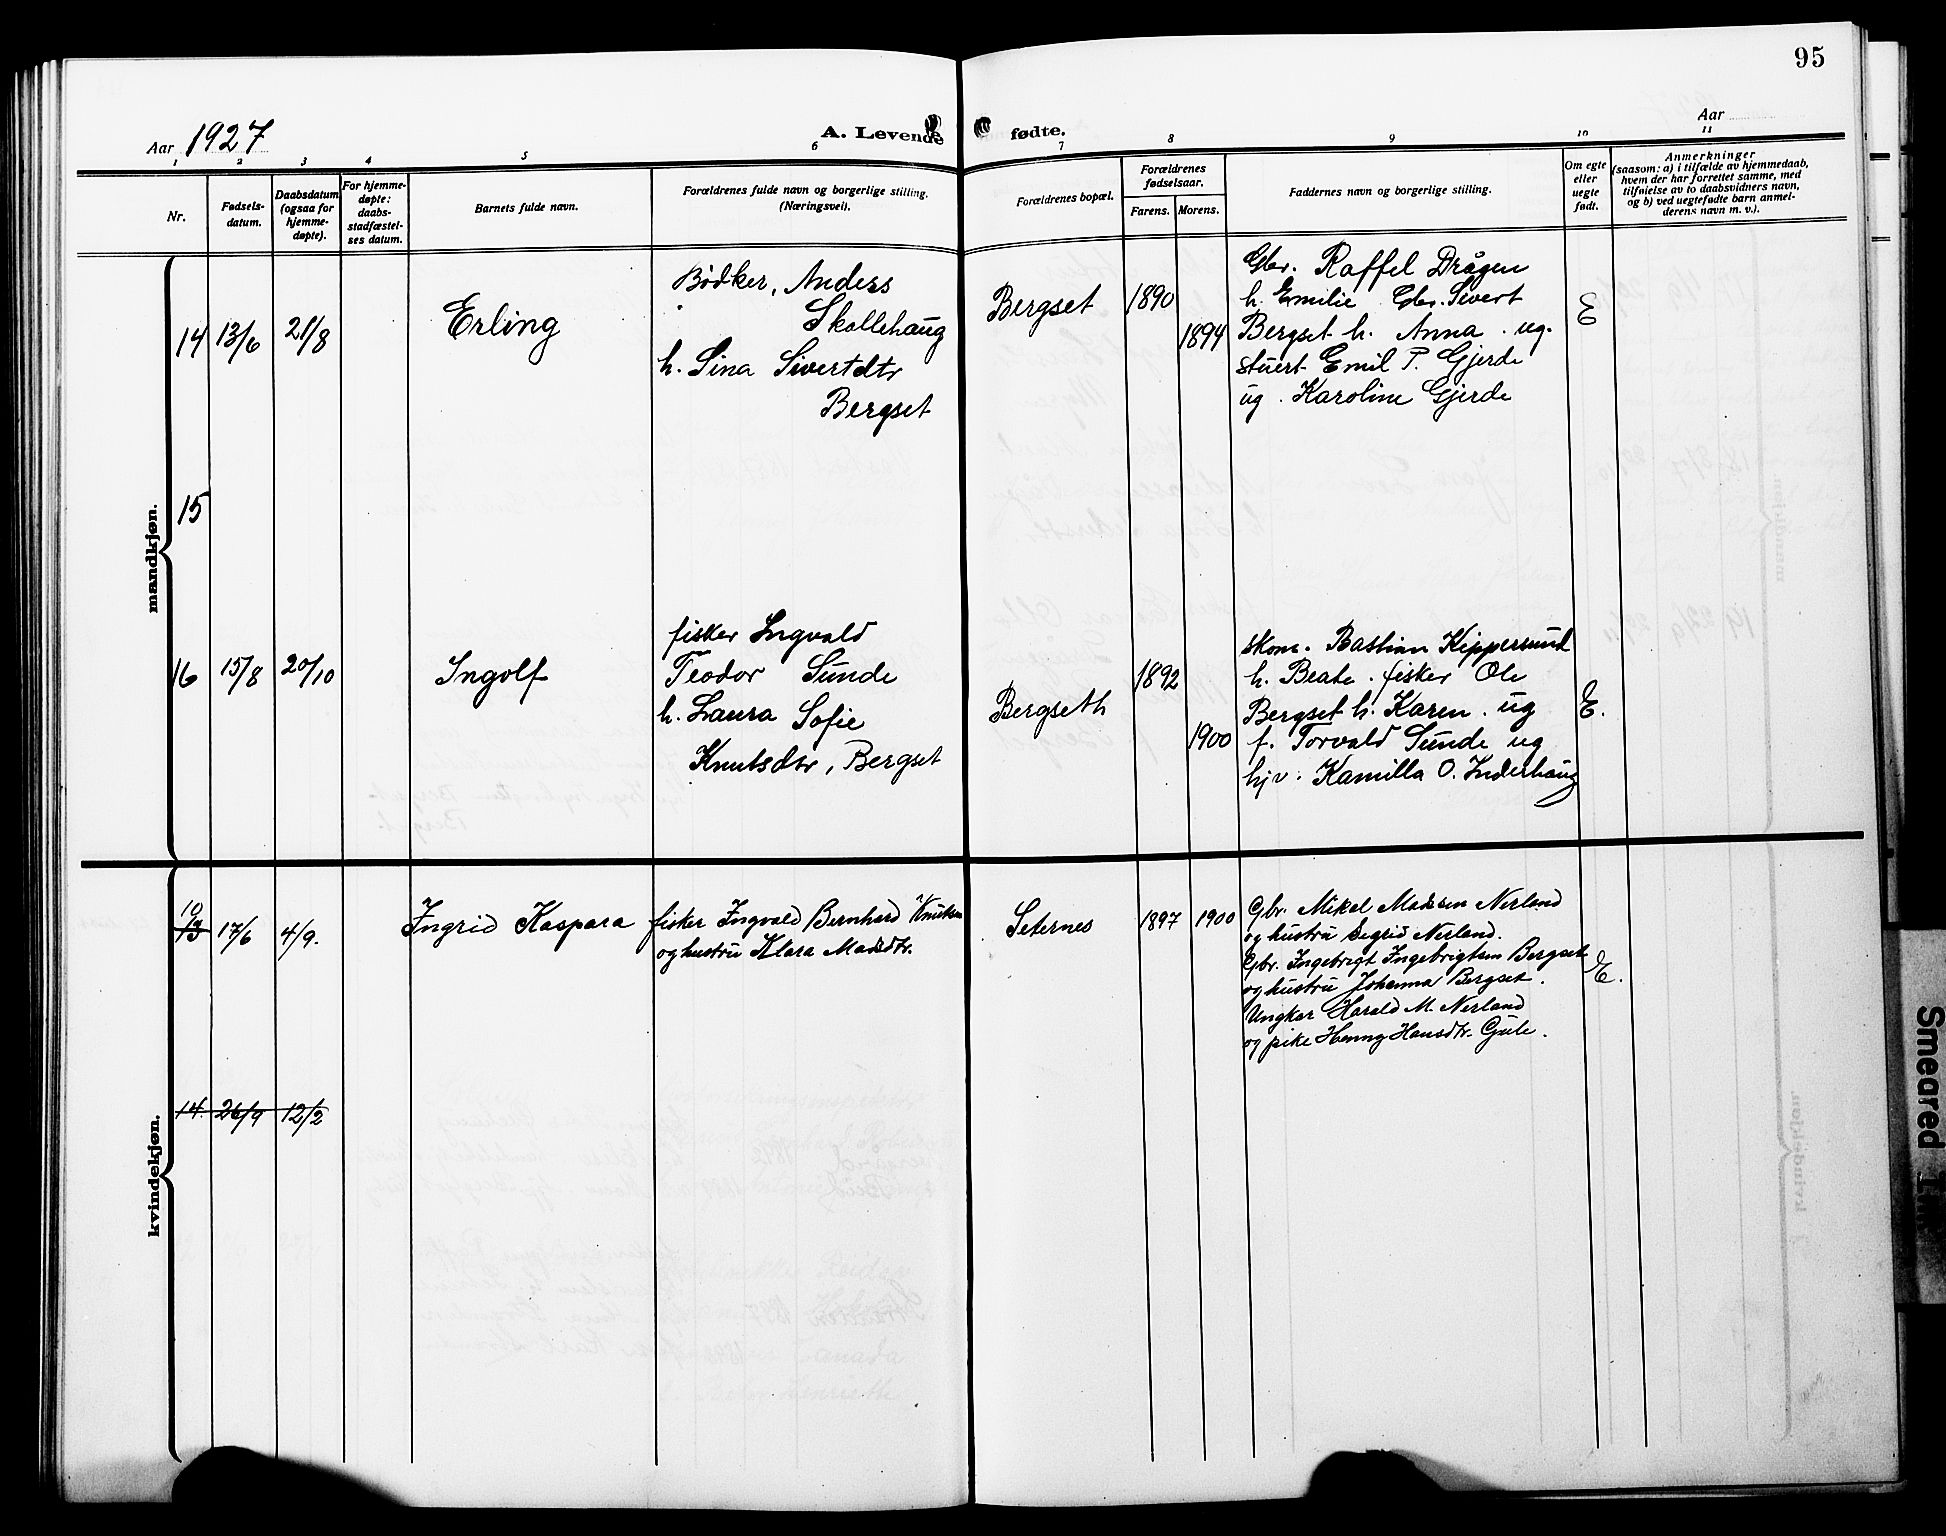 95
Aar 1927
A. Levende
fødte.
Aar
1 2 3 4 5 6 7 8 9 10 11
Nr.
Fødsels-
datum.
Daabsdatum
(ogsaa for
hjemme-
døpte).
For hjemme-
døpte:
daabs-
stadfæstel-
ses datum.
Barnets fulde navn.
Forældrenes fulde navn og borgerlige stilling.
(Næringsvei).
Forældrenes bopæl.
Forældrenes
fødselsaar.
Farens. Morens.
Faddernes navn og borgerlige stilling.
Om egte
eller
uegte
født.
Anmerkninger
(saasom: a) i tilfælde av hjemmedaab,
hvem der har forrettet samme, med
tilføielse av to daabsvidners navn,
og b) ved uegtefødte barn anmel-
derens navn m. v.).
mandkjøn.
14 13/6 21/8
Erling
Bødker, Anders
Skollehaug
h. Sina Sivertdtr
Bergset
Bergset
1890
1894
Gbr. Raffel Drågen
h. Emilie Gbr. Sivert
Bergset h. Anna . ug.
stuert Emil P. Gjerde
ug . Karoline Gjerde
E
15
16 15/8 20/10
Ingolf
fisker Ingvald
Teodor Sunde
h. Laura Sofie
Knutsdtr, Bergset
Bergseth
1892
1900
skom. Bastian Kippersund
h. Beate . fisker Ole
Bergset h. Karen . ug
f. Torvald Sunde ug
hjv. Kamilla O. Inderhaug
E.
kvindekjøn.
10
13 17/6 4/9.
Ingrid Kaspara
fisker Ingvald Bernhard Knutsen
og hustru Klara Madsdtr.
Seternes
1897 1900
Gbr. Mikal Madsen Nerland
og hustru Segrid Nerland.
Gbr. Ingebrigt Ingebrigtsen Bergset
og hustru Johanna Bergset.
Ungkar Harald M. Nerland
og pike Henny Hansdtr. Gule.
E.
14. 26/9 12/2
Smeared